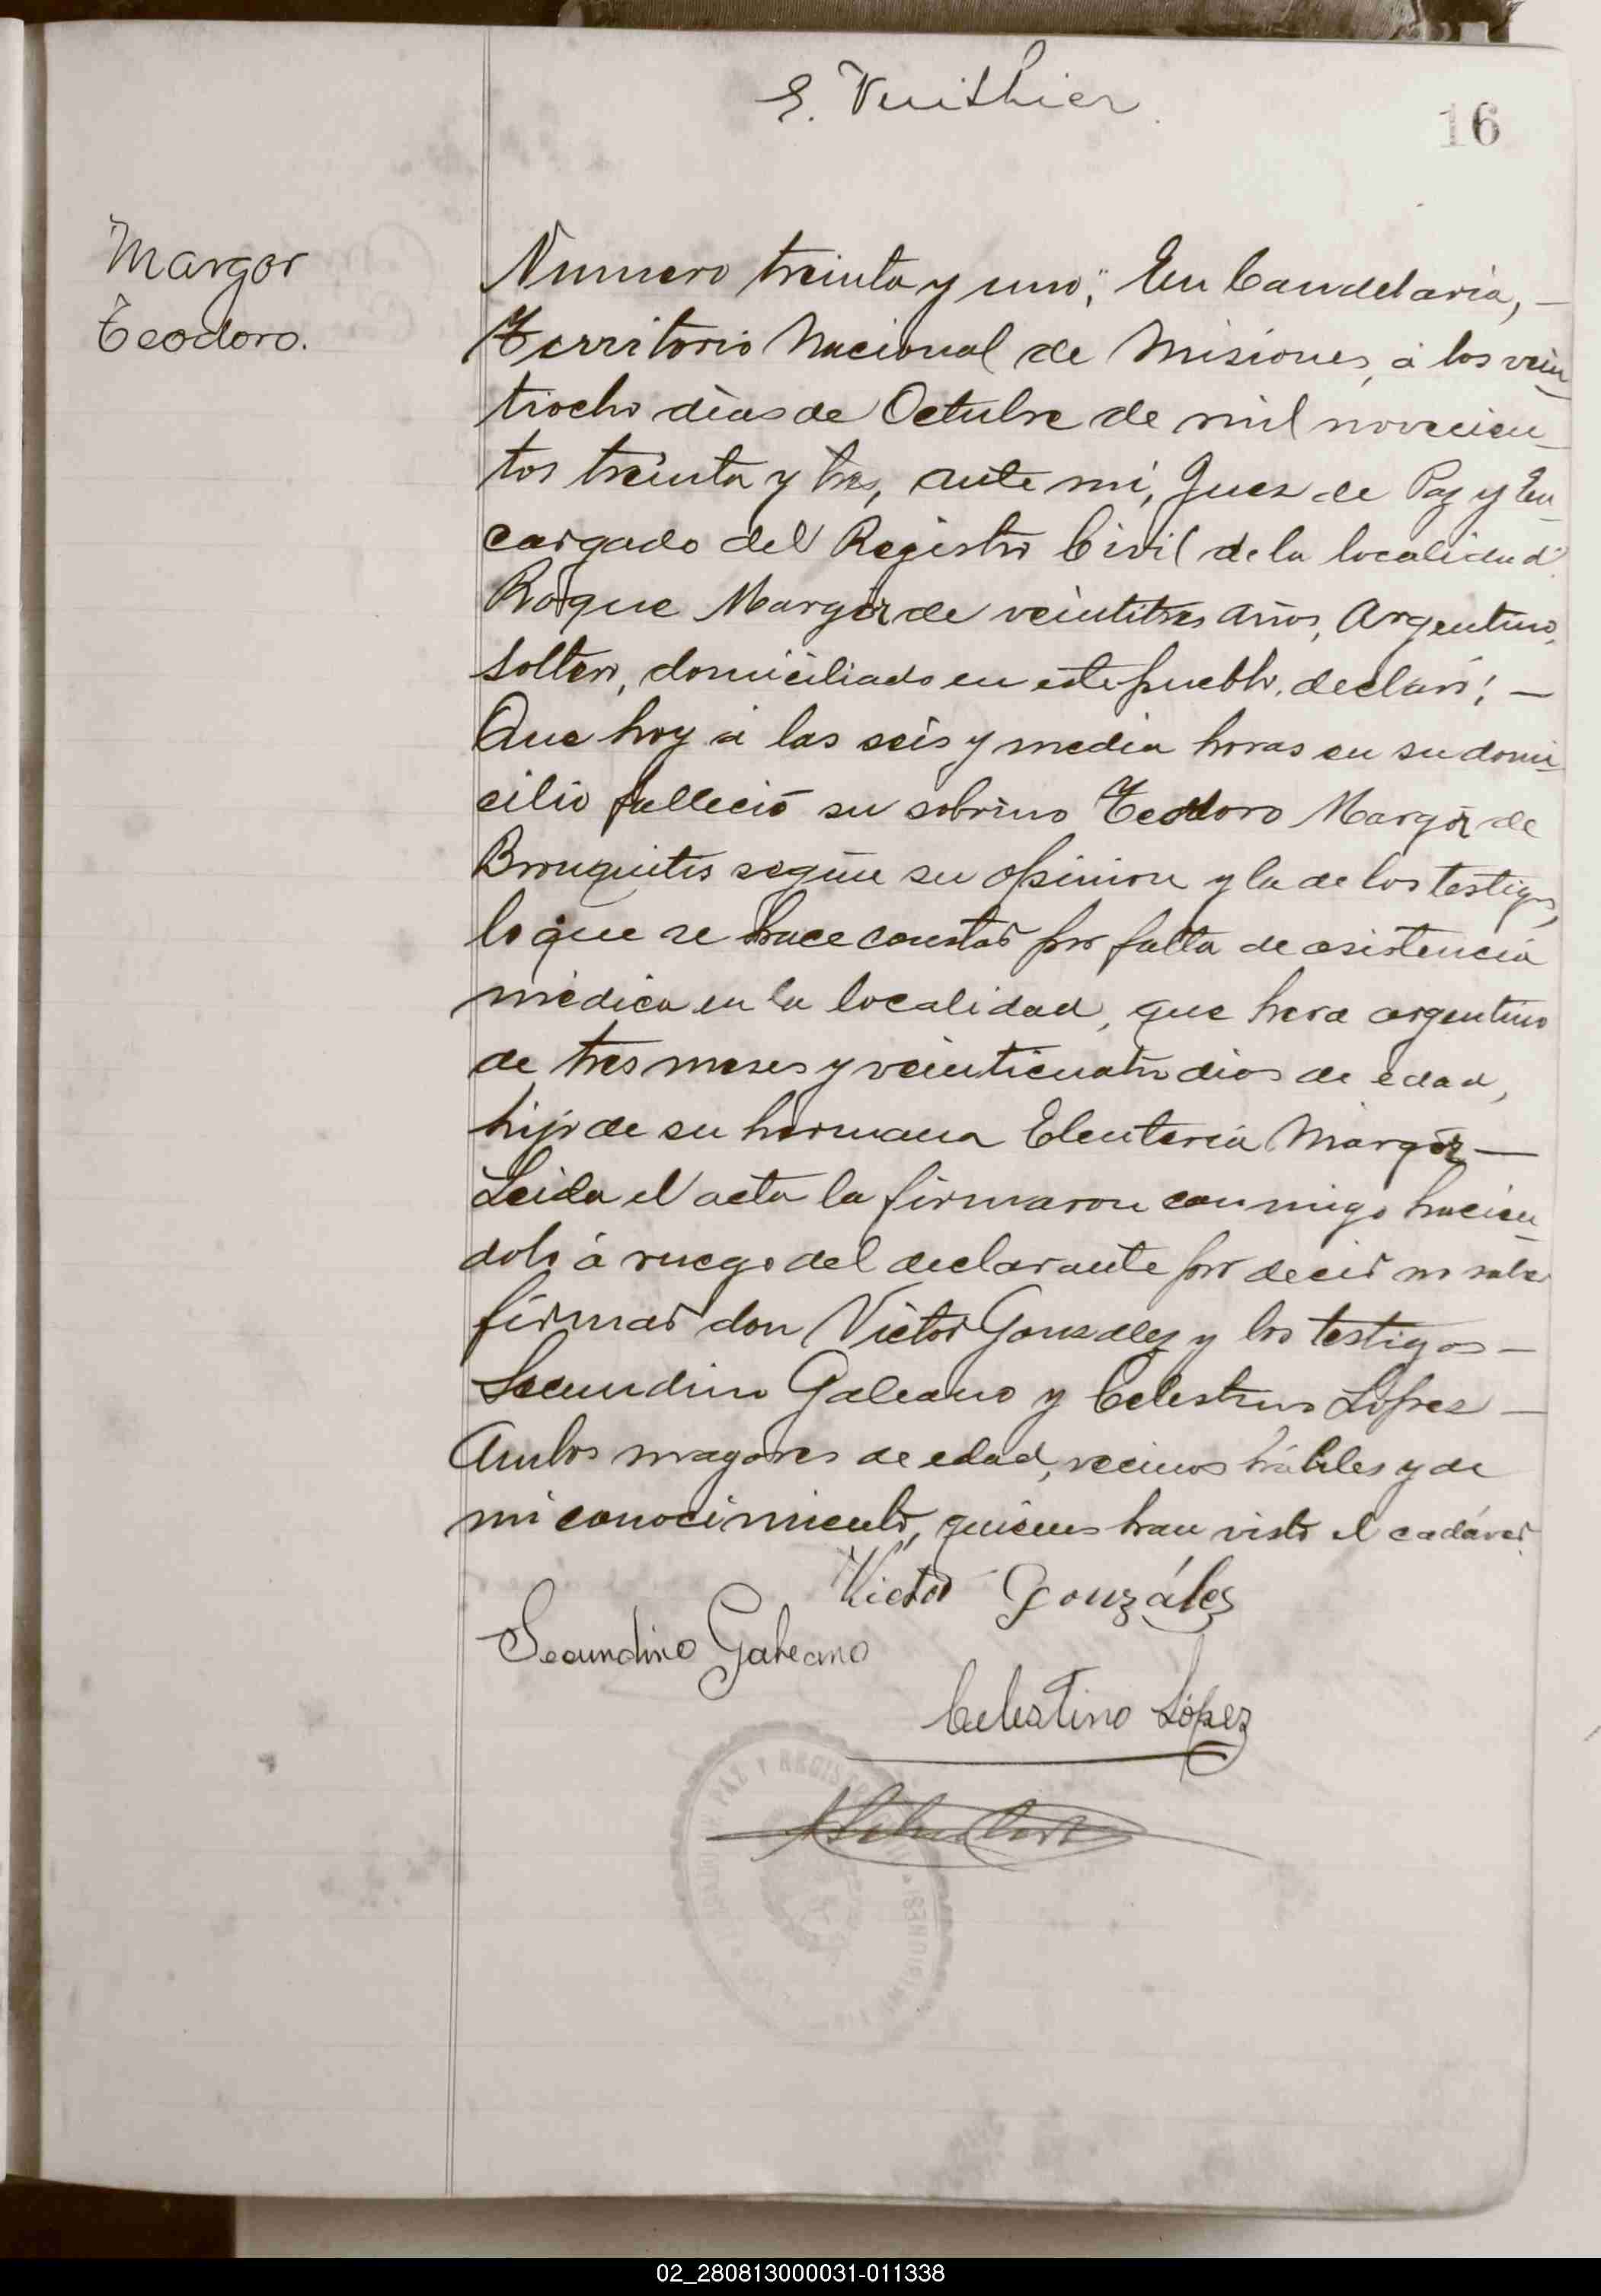 E. Vuithier
16
Margor
Teodoro.
Numero treinta y uno; En Candelaria, —
Territorio Nacional de Misiones, á los vein
tiocho dias de Octubre de mil novecien
tos treinta y tres, ante mi, Juez de Paz y En
cargado del Registro Civil de la localidad
Roque Margor de veintitres años, Argentino,
soltero, domiciliado en este pueblo, declaró; —
Que hoy á las seis y media horas en su domi
cilio falleció su sobrino Teodoro Margor de
Bronquitis según su opinion y la de los testigos,
lo que se hace constar por falta de asistencia
médica en la localidad, que hera argentino
de tres meses y veinticuatro dias de edad,
hijo de su hermana Eleuteria Margor —
Leida el acta la firmaron conmigo hacien
dolo á ruego del declarante por decir no saber
firmar don Victor Gonzalez y los testigos —
Secundino Galeano y Celestino López —
Ambos mayores de edad, vecinos hábiles y de
mi conocimiento, quienes han visto el cadáver.
Victor González
Secundino Galeano
Celestino López
PAZ Y REGISTRO
(MISIONES)
02_280813000031-011338